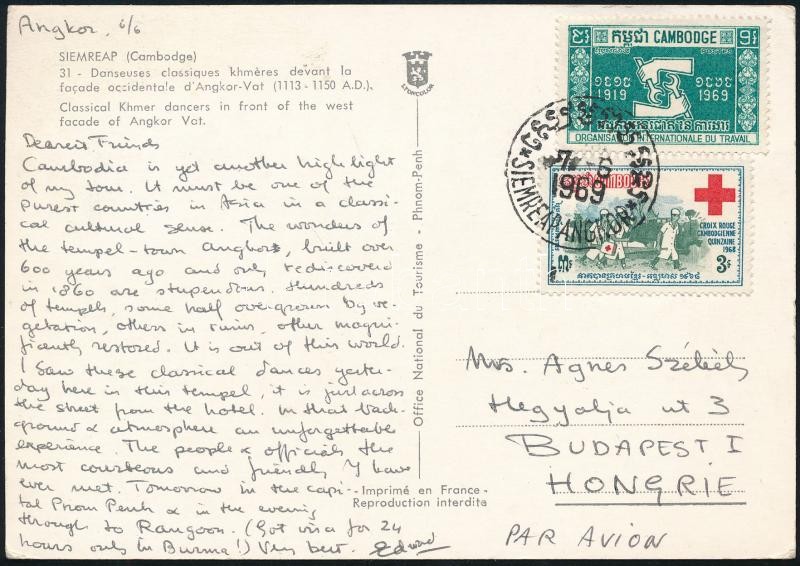 Angkor, 6/6
SIEMREAP (Cambodge)
31 - Danseuses classiques khmères devant la
façade occidentale d'Angkor-Vat (1113-1150 A.D.).
Classical Khmer dancers in front of the west
facade of Angkor Vat.
LYONCOLOR
Dearest Friends
Cambodia is yet another highlight
of my tour. It must be one of the
purest countries in Asia in a classi-
cal cultural sense. The wonders of
the tempel-town Angkor, built over
600 years ago and only rediscovered
in 1860 are stupendous. Hundreds
of tempels, some half overgrown by ve-
getation, others in ruins, other magni-
ficently restored. It is out of this world.
I saw these classical dances yester-
day here in this tempel, it is just across
the street from the hotel. In that back-
ground & atmosphere an unforgettable
experience. The people & officials the
most courteous and friendly I have
ever met. Tomorrow in the capi-
tal Pnom Penh & in the evening
through to Rangoon. (Got visa for 24
hours only in Burma!) Very best. Edward
Office National du Tourisme - Phnom-Penh
-Imprimé en France-
Reproduction interdite
កម្ពុជា CAMBODGE
POSTES
១៩១៩ ១៩៦៩
1919 1969
ORGANISATION INTERNATIONALE DU TRAVAIL
7-6
1969
*SIEMREAP-ANGKOR*
CAMBODGE
CROIX ROUGE
CAMBODGIENNE
QUINZAINE
1968
3
Mrs. Agnes Székely
Hegyalja ut 3
BUDAPEST I
HONGRIE
PAR AVION